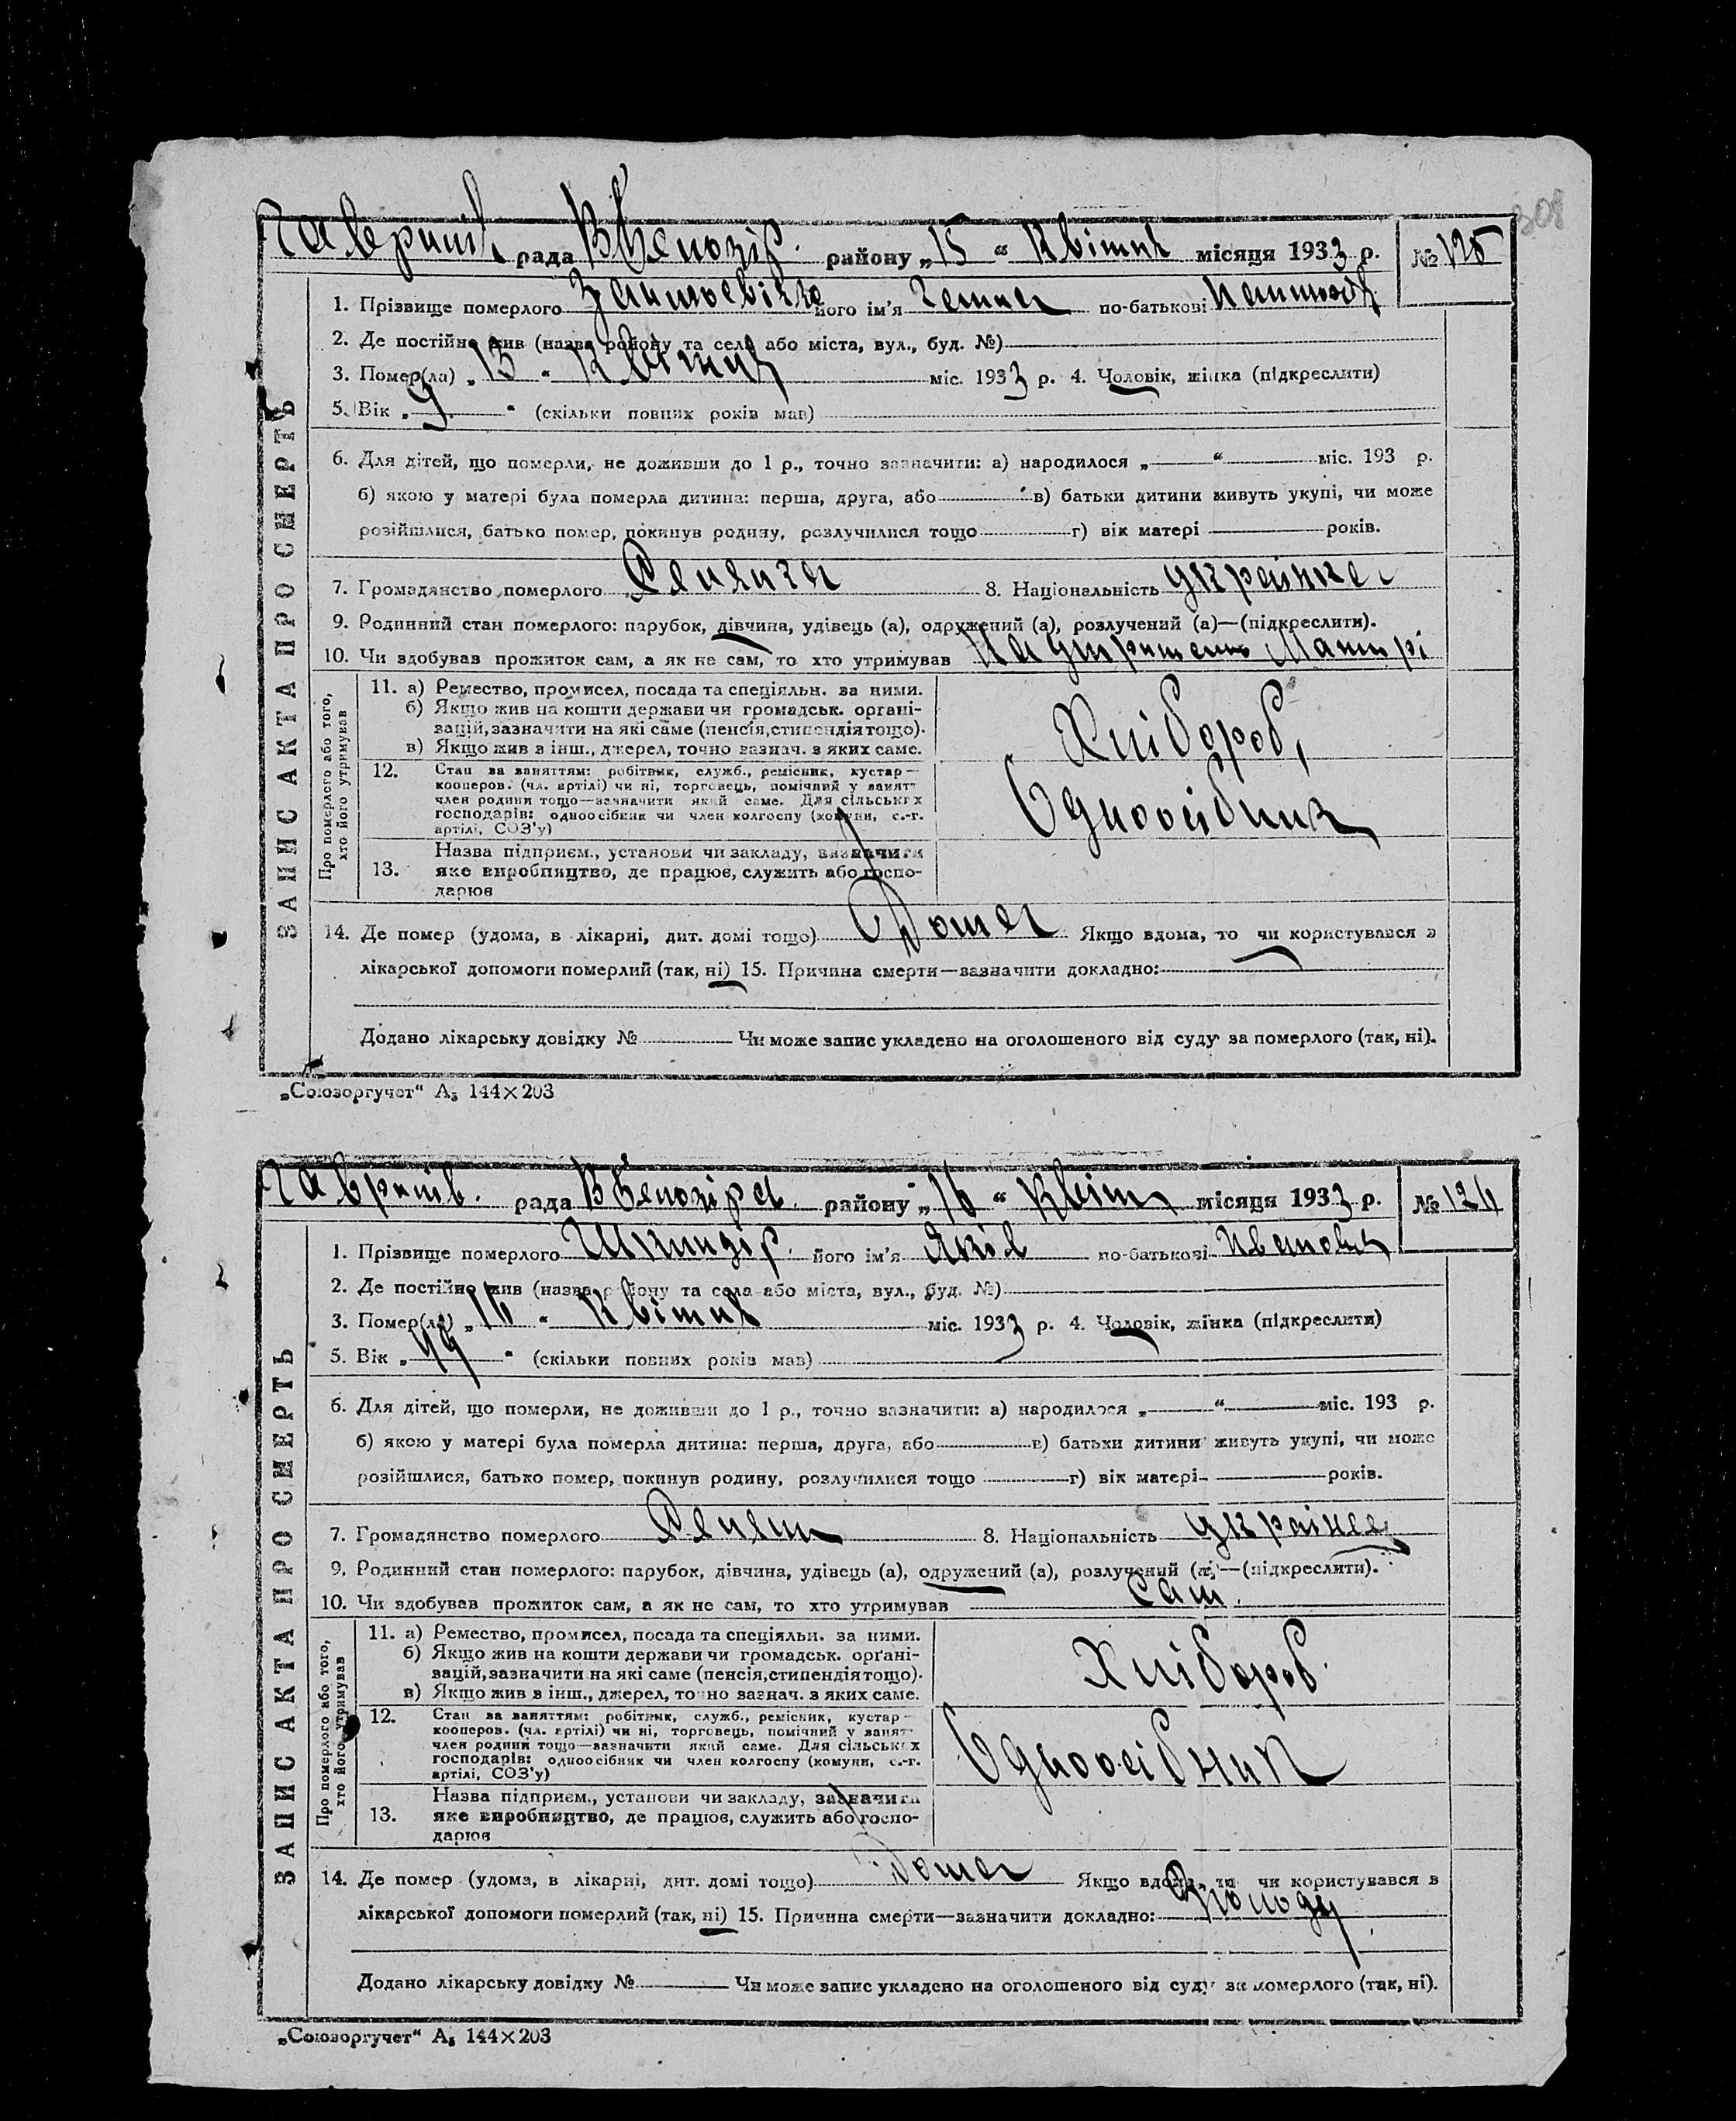 308
рада району „15“ Квітня місяця 1933 р. № 125
ЗАПИС АКТА ПРО СМЕРТЬ
1. Прізвище померлого його ім'я по-батькові
2. Де постійно жив (назва району та села або міста, вул., буд. №)
3. Помер(ла) „15“ Квітня міс. 1933 р. 4. Чоловік, жінка (підкреслити)
5. Вік „9.“ (скільки повних років мав)
6. Для дітей, що померли, не доживши до 1 р., точно зазначити: а) народилося „ “ міс. 193 р.
б) якою у матері була померла дитина: перша, друга, або в) батьки дитини живуть укупі, чи може
розійшлися, батько помер, покинув родину, розлучилися тощо г) вік матері років.
7. Громадянство померлого Селянка 8. Національність українка
9. Родинний стан померлого: парубок, дівчина, удівець (а), одружений (а), розлучений (а)—(підкреслити).
10. Чи здобував прожиток сам, а як не сам, то хто утримував На утриманні Матері
Про померлого або того,
хто його утримував
11. а) Ремество, промисел, посада та спеціяльн. за ними.
б) Якщо жив на кошти держави чи громадськ. органі-
зацій, зазначити на які саме (пенсія, стипендія тощо).
в) Якщо жив з інш., джерел, точно зазнач. з яких саме.
Хлібороб,
12. Стан за заняттям: робітник, служб., ремісник, кустар—
кооперов. (чл. артілі) чи ні, торговець, помічний у занятт
член родини тощо—зазначити який саме. Для сільських
господарів: одноосібник чи член колгоспу (комуни, с.-г.
артілі, СОЗ'у)
Одноосібник
13. Назва підприєм., установи чи закладу, зазначити
яке виробництво, де працює, служить або госпо-
дарює
14. Де помер (удома, в лікарні, дит. домі тощо) Дома Якщо вдома, то чи користувався з
лікарської допомоги померлий (так, ні) 15. Причина смерти—зазначити докладно:
Додано лікарську довідку № Чи може запис укладено на оголошеного від суду за померлого (так, ні).
„Союзоргучет“ А₅ 144×203
рада району „16“ Квітн місяця 1933 р. № 124
ЗАПИС АКТА ПРО СМЕРТЬ
1. Прізвище померлого його ім'я Яків по-батькові Іванович
2. Де постійно жив (назва району та села або міста, вул., буд. №)
3. Помер(ла) „16“ Квітня міс. 1933 р. 4. Чоловік, жінка (підкреслити)
5. Вік „49“ (скільки повних років мав)
6. Для дітей, що померли, не доживши до 1 р., точно зазначити: а) народилося „ “ міс. 193 р.
б) якою у матері була померла дитина: перша, друга, або в) батьки дитини живуть укупі, чи може
розійшлися, батько помер, покинув родину, розлучилися тощо г) вік матері років.
7. Громадянство померлого Селян 8. Національність українец
9. Родинний стан померлого: парубок, дівчина, удівець (а), одружений (а), розлучений (а)—(підкреслити).
10. Чи здобував прожиток сам, а як не сам, то хто утримував Сам.
Про померлого або того,
хто його утримував
11. а) Ремество, промисел, посада та спеціяльн. за ними.
б) Якщо жив на кошти держави чи громадськ. органі-
зацій, зазначити на які саме (пенсія, стипендія тощо).
в) Якщо жив з інш., джерел, точно зазнач. з яких саме.
Хлібороб.
12. Стан за заняттям: робітник, служб., ремісник, кустар—
кооперов. (чл. артілі) чи ні, торговець, помічний у занятт
член родини тощо—зазначити який саме. Для сільських
господарів: одноосібник чи член колгоспу (комуни, с.-г.
артілі, СОЗ'у)
Одноосібник
13. Назва підприєм., установи чи закладу, зазначити
яке виробництво, де працює, служить або госпо-
дарює
14. Де помер (удома, в лікарні, дит. домі тощо) Дома Якщо вдома, то чи користувався з
лікарської допомоги померлий (так, ні) 15. Причина смерти—зазначити докладно:
Додано лікарську довідку № Чи може запис укладено на оголошеного від суду за померлого (так, ні).
„Союзоргучет“ А₅ 144×203